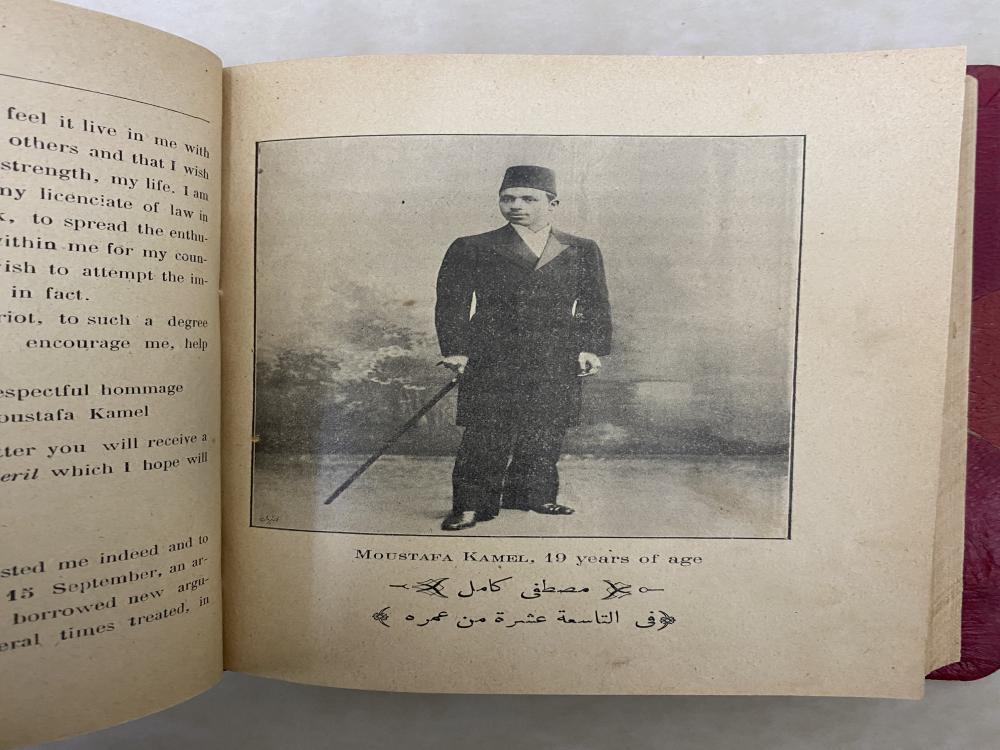 feel it live in me with
others and that I wish
strength, my life. I am
my licenciate of law in
to spread the enthu-
within me for my coun-
wish to attempt the im-
in fact.
riot, to such a degree
encourage me, help
espectful hommage
oustafa Kamel
tter you will receive a
eril which I hope will
sted me indeed and to
15 September, an ar-
borrowed new argu-
eral times treated, in
MOUSTAFA KAMEL, 19 years of age
مصطفى كامل
في التاسعة عشرة من عمره